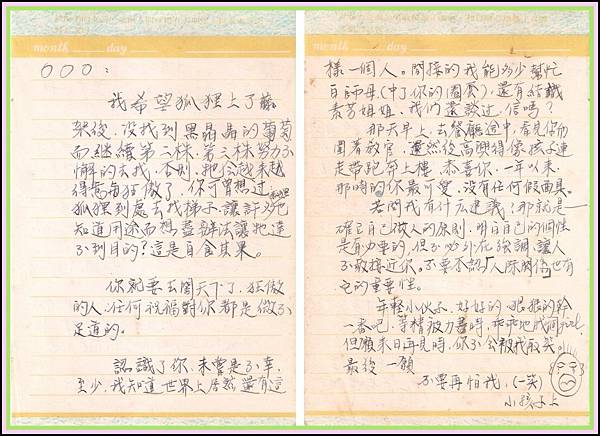 month        day
〇〇〇：
我希望狐狸上了藤
架後，沒找到黑晶晶的葡萄
而繼續第二株、第三株努力不
懈的去找，否則，她會越來越
得為自狂傲了，你可曾想過，
狐狸到處去找梯子，讓許多她
知道用途而想盡辦法讓她達
不到目的？這是自食其果。
你就要去闖天下了，狂傲
的人，任何祝福對你都是微不
足道的。
認識了你，未嘗是不幸，
至少，我知道世界上居然還有這
month        day
樣一個人。間接的我能多少幫忙
百師母(中了你的圈套)，還有結識
素芬姐姐，我們還談過，信嗎？
那天早上，去餐廳途中，看見你們
圍著教官，還然後高興得像孩子連
走帶跑奔上樓，恭喜你，一年以來，
那時的你最可愛，沒有任何假面具。
若問我有什麼建議，那就是—
確立自己做人的原則，明白自己的個性
是有必要的，但不必外在強調，讓人
不敢接近你，不要否認「人際關係」也有
它的重要性。
年輕小伙子，好好的，狠狠的幹
一番吧！等精疲力盡時，乖乖地找個girl，
但願來日再見時，你不會被我取笑。
最後一願
不要再怕我，(一笑)
小孩子上